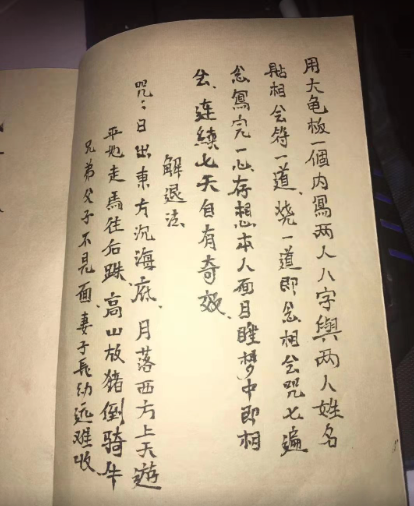 用大龟板一個内寫两人八字與两人姓名
貼相会符一道、燒一道即念相会咒七遍
念寫完一心存想本人面目睡梦中即相
会、連續七天自有奇效、
解退法、
咒:日出東方沉海底、月落西方上天遊
平地走馬往后跌、高山放猪倒騎牛
兄弟父子不見面、妻子長幼远难收